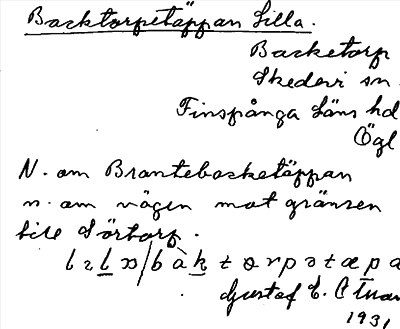 Backtorpstäppan Lilla.
Backetorp
Skedevi sn.
Finspånga läns hd
Ögl
N. om Brantebacketäppan
n. om vägen mot gränsen
till Sörtorp.
Gustaf E.
1931